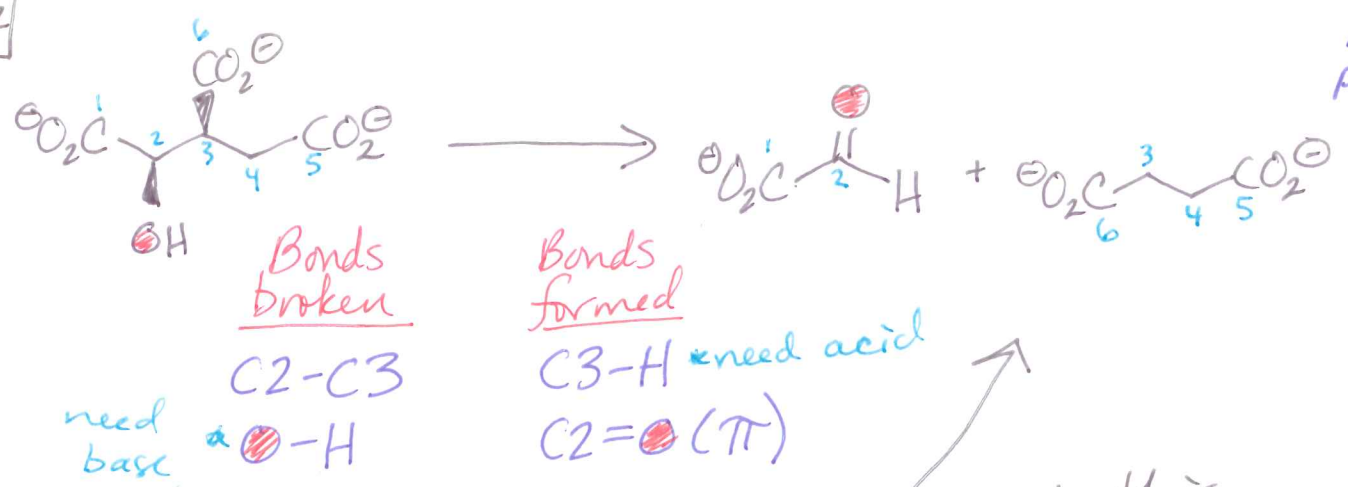 6
CO₂⊖
⊖O₂C 1 2 3 4 CO₂⊖ 5
OH
⊖O₂C 1 2 O H + ⊖O₂C 6 3 4 CO₂⊖ 5
Bonds broken
C2-C3
need base * O-H
Bonds formed
C3-H *need acid
C2=O (π)